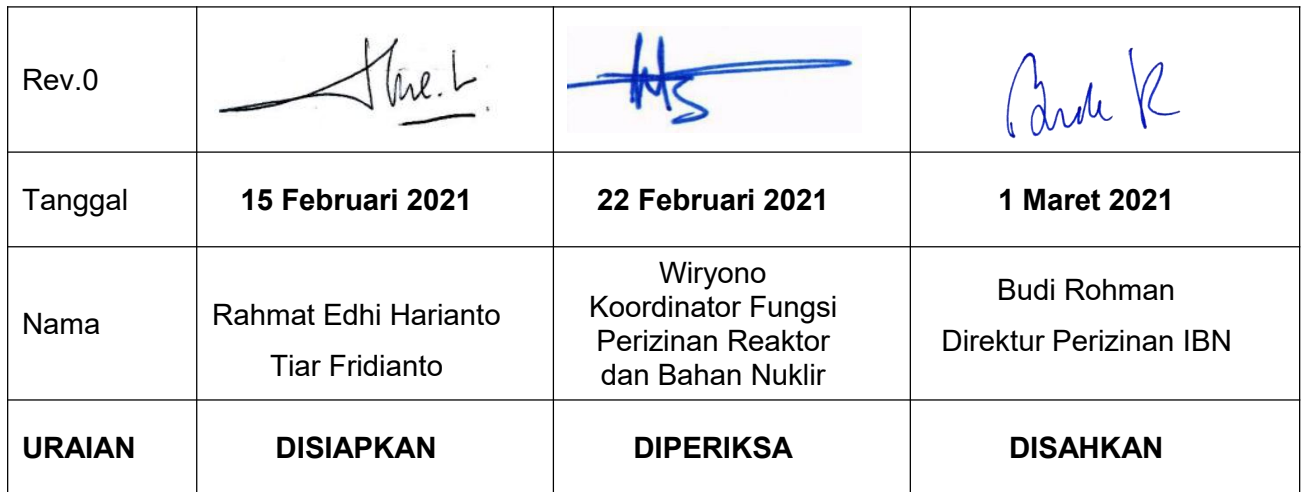 Rev.0
Tanggal
15 Februari 2021
22 Februari 2021
1 Maret 2021
Nama
Rahmat Edhi Harianto
Tiar Fridianto
Wiryono
Koordinator Fungsi
Perizinan Reaktor
dan Bahan Nuklir
Budi Rohman
Direktur Perizinan IBN
URAIAN
DISIAPKAN
DIPERIKSA
DISAHKAN